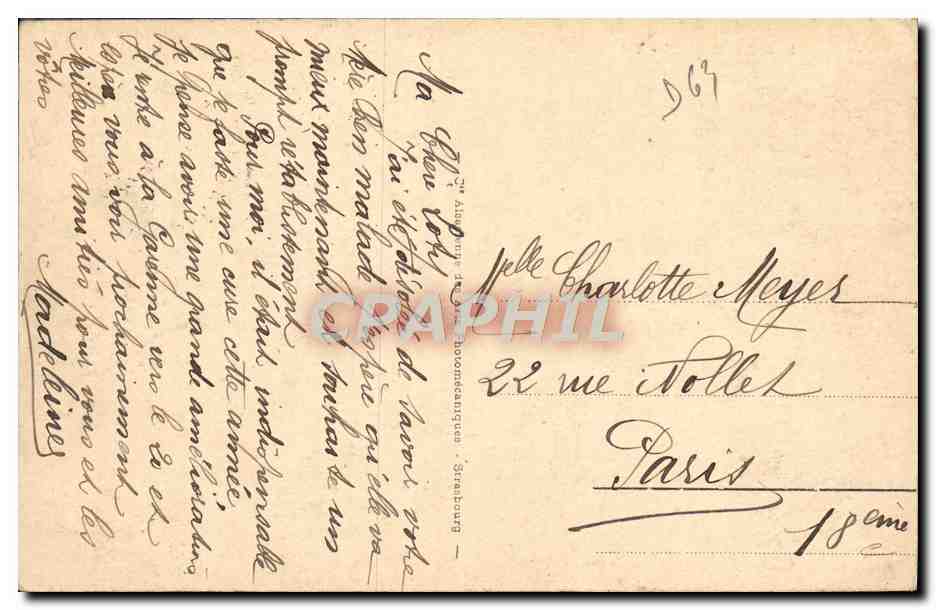 Ma Chère Loty
J'ai été désolée de savoir votre
père bien malade j'espère qu'elle va
mieux maintenant et souhaite un
prompt rétablissement
Pour moi, il était indispensable
que je fasse une cure cette année
je pense avoir une grande amélioration
Je rentre à la Garenne vers le 20 et
espère vous voir prochainement
Meilleures amitiés pour vous et les
vôtres
Madeleine
Cie Alsacienne des Arts Photomécaniques - Strasbourg —
D 63
Melle Charlotte Meyer
22 rue Nollet
Paris
18eme
CPAPHIL